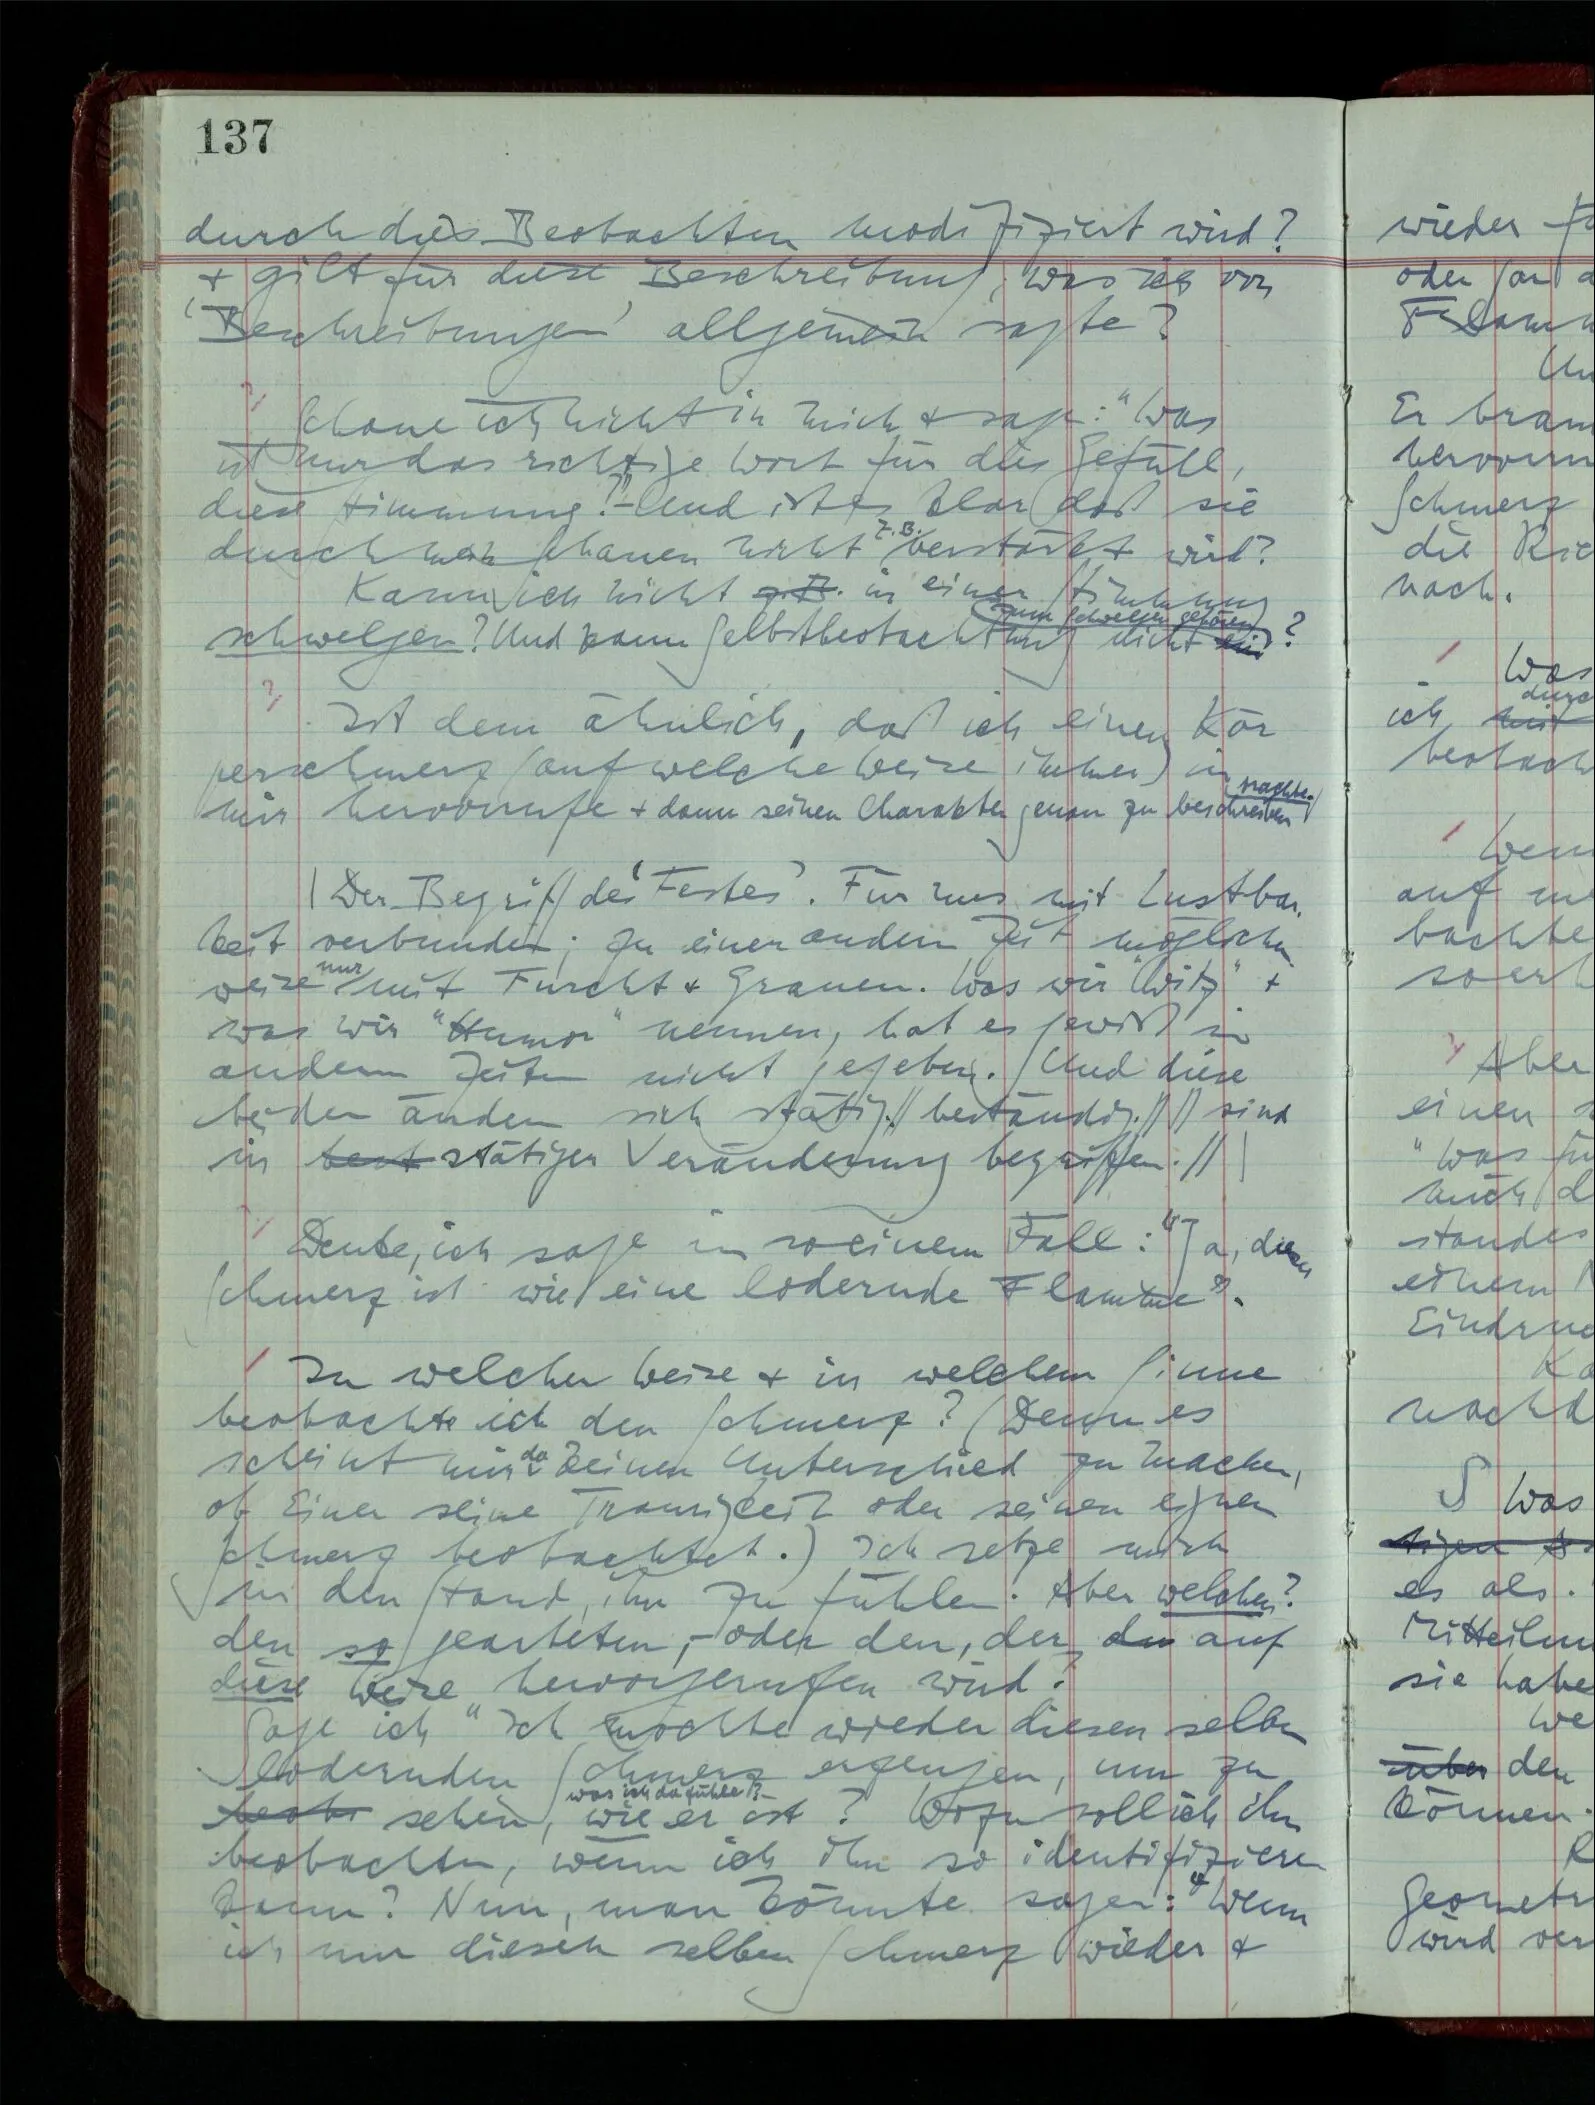 137
durch dies Beobachten modifiziert wird?
+ gilt für diese Beschreibung, was ich von
'Beschreibungen' allgemein sagte?
Schaue ich nicht in mich + sage: "Was
ist nur das richtige Wort für dies Gefühl,
diese Stimmung?" – Und ist es klar daß sie
durch mein Schauen nicht z.B. verstärkt wird?
Kann ich nicht z.B. in einer Stimmung
schwelgen? Und kann Selbstbeobachtung nicht zum Schwelgen gehören?
Ist dem ähnlich, daß ich einen Kör
perschmerz (auf welche Weise immer) in
mir hervorrufe + dann seinen Charakter genau zu beschreiben trachte.
| Der Begriff des 'Festes'. Für uns mit Lustbar
keit verbunden; zu einer andern Zeit möglicher
weise nur mit Furcht + Grauen. Was wir "Witz" +
was wir "Humor" nennen, hat es gewiß in
andern Zeiten nicht gegeben. Und diese
beiden ändern sich stätig. // beständig. // // sind
in best stätiger Veränderung begriffen. // |
Denke, ich sage in so einem Fall: "Ja, dieser
Schmerz ist wie eine lodernde Flamme".
In welcher Weise + in welchem Sinne
beobachte ich den Schmerz? (Denn es
scheint mir da keinen Unterschied zu machen,
ob Einer seine Traurigkeit oder seinen eignen
Schmerz beobachtet.) Ich setze mich
in den Stand, ihn zu fühlen. Aber welchen?
den so gearteten, – oder den, der auf
diese Weise hervorgerufen wird?
Sage ich "Ich möchte wieder diesen selben
lodernden Schmerz erzeugen, um zu
beobt sehen, was ich da fühle? – wie er ist? Wozu soll ich ihn
beobachten, wenn ich ihn so identifizieren
kann? Nun, man könnte sagen: "Wenn
ich nur diesen selben Schmerz wieder +
wieder
oder gar
Er
Schmerz
die
nach.
Was
ich mit
auf
Aber
einen
"Was
auch
standes
einem
Was
es als
sie habe
über den
können.
wird